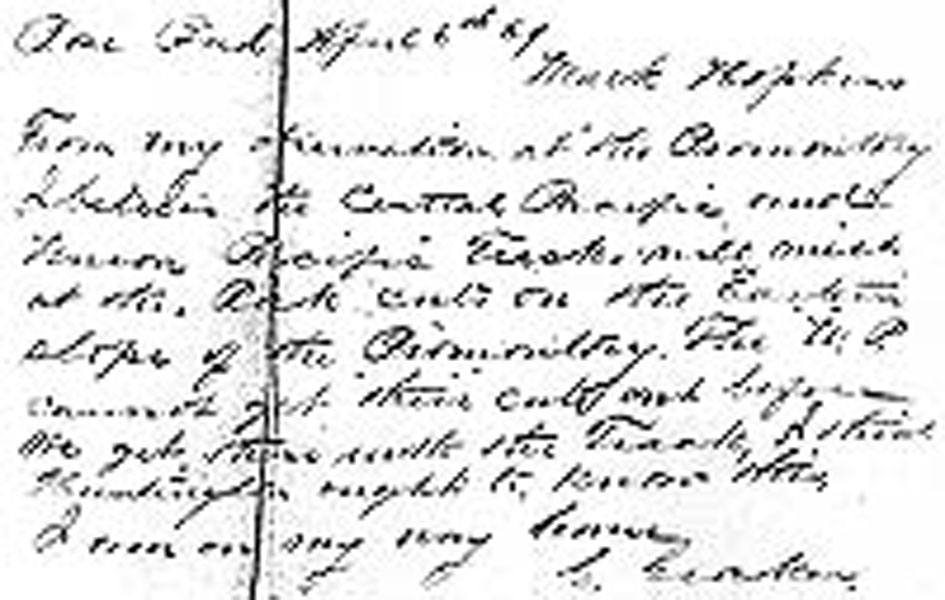 End April 6th 69
Mark Hopkins
From my observation at the Promontory
I believe the Central Pacific and
Union Pacific Tracks will meet
at the Rock cuts on the Eastern
slope of the Promontory. The U. P.
cannot get their cuts out before
we get there with the Track, I think
Huntington ought to know this
I am on my way home
C. Crocker